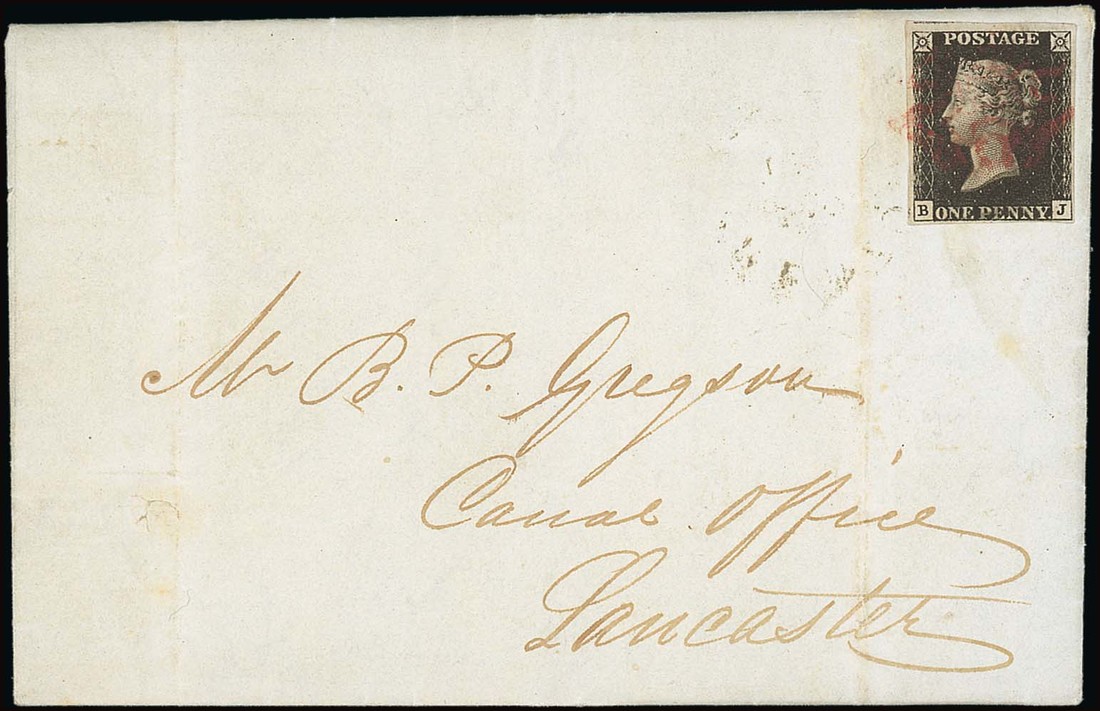 POSTAGE
B ONE PENNY J
Mr B. P. Gregson
Canal Office
Lancaster